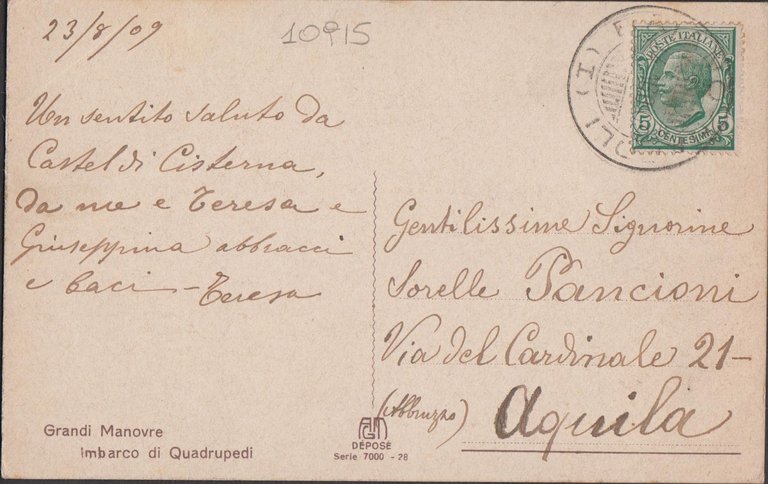 23/8/09
10915
POSTE ITALIANE
5 5
CENTESIMI
Un sentito saluto da
Castel di Cisterna,
da me e Teresa e
Giuseppina abbracci
e baci - Teresa
Gentilissime Signorine
Sorelle Pancioni
Via del Cardinale 21-
(Abbruzzo) Aquila
Grandi Manovre
Imbarco di Quadrupedi
DEPOSE
Serie 7000 - 28